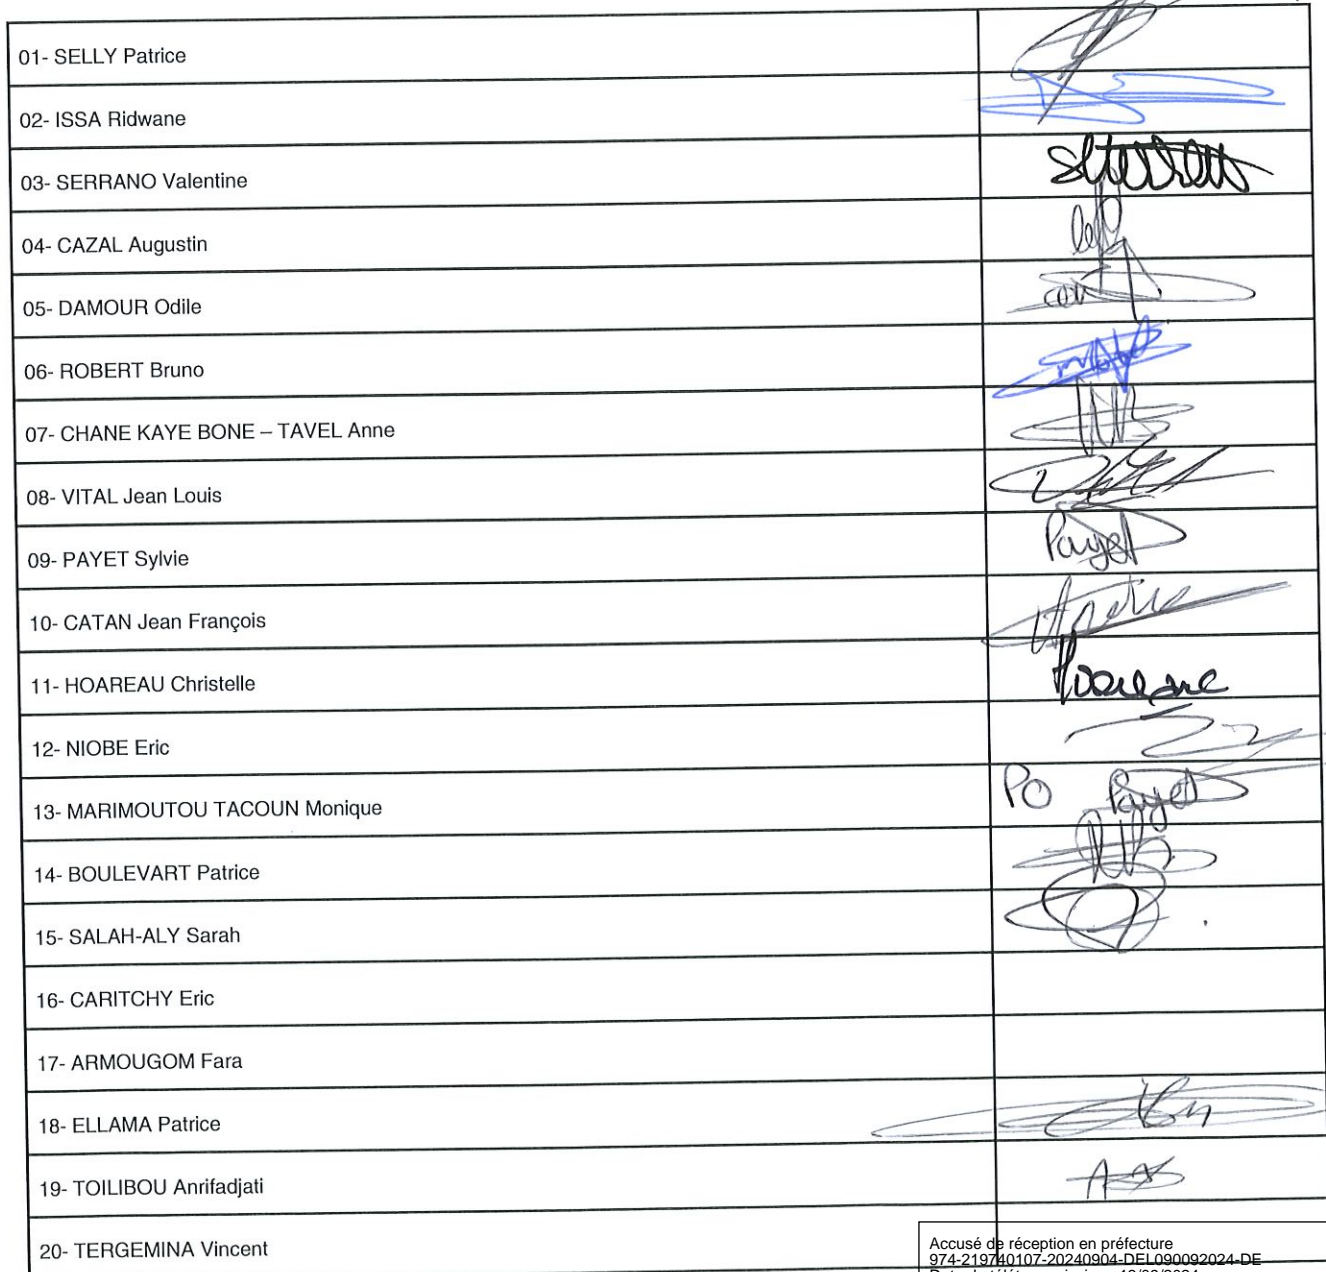 01- SELLY Patrice
02- ISSA Ridwane
03- SERRANO Valentine
04- CAZAL Augustin
05- DAMOUR Odile
06- ROBERT Bruno
07- CHANE KAYE BONE – TAVEL Anne
08- VITAL Jean Louis
09- PAYET Sylvie
Payet
10- CATAN Jean François
11- HOAREAU Christelle
12- NIOBE Eric
13- MARIMOUTOU TACOUN Monique
PO Payet
14- BOULEVART Patrice
15- SALAH-ALY Sarah
16- CARITCHY Eric
17- ARMOUGOM Fara
18- ELLAMA Patrice
19- TOILIBOU Anrifadjati
20- TERGEMINA Vincent
Accusé de réception en préfecture
974-219740107-20240904-DEL090092024-DE